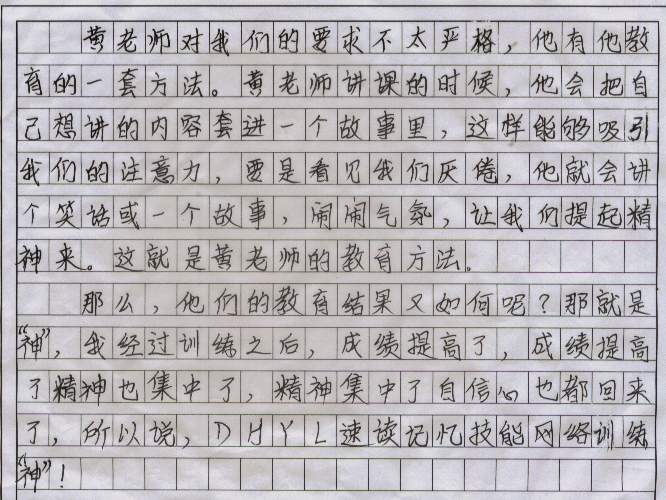 黄老师对我们的要求不太严格，他有他教
育的一套方法。黄老师讲课的时候，他会把自
己想讲的内容套进一个故事里，这样能够吸引
我们的注意力，要是看见我们厌倦，他就会讲
个笑话或一个故事，闹闹气氛，让我们提起精
神来。这就是黄老师的教育方法。
那么，他们的教育结果又如何呢？那就是
“神”，我经过训练之后，成绩提高了，成绩提高
了精神也集中了，精神集中了自信心也都回来
了，所以说，DHYL速读记忆技能网络训练
“神”！